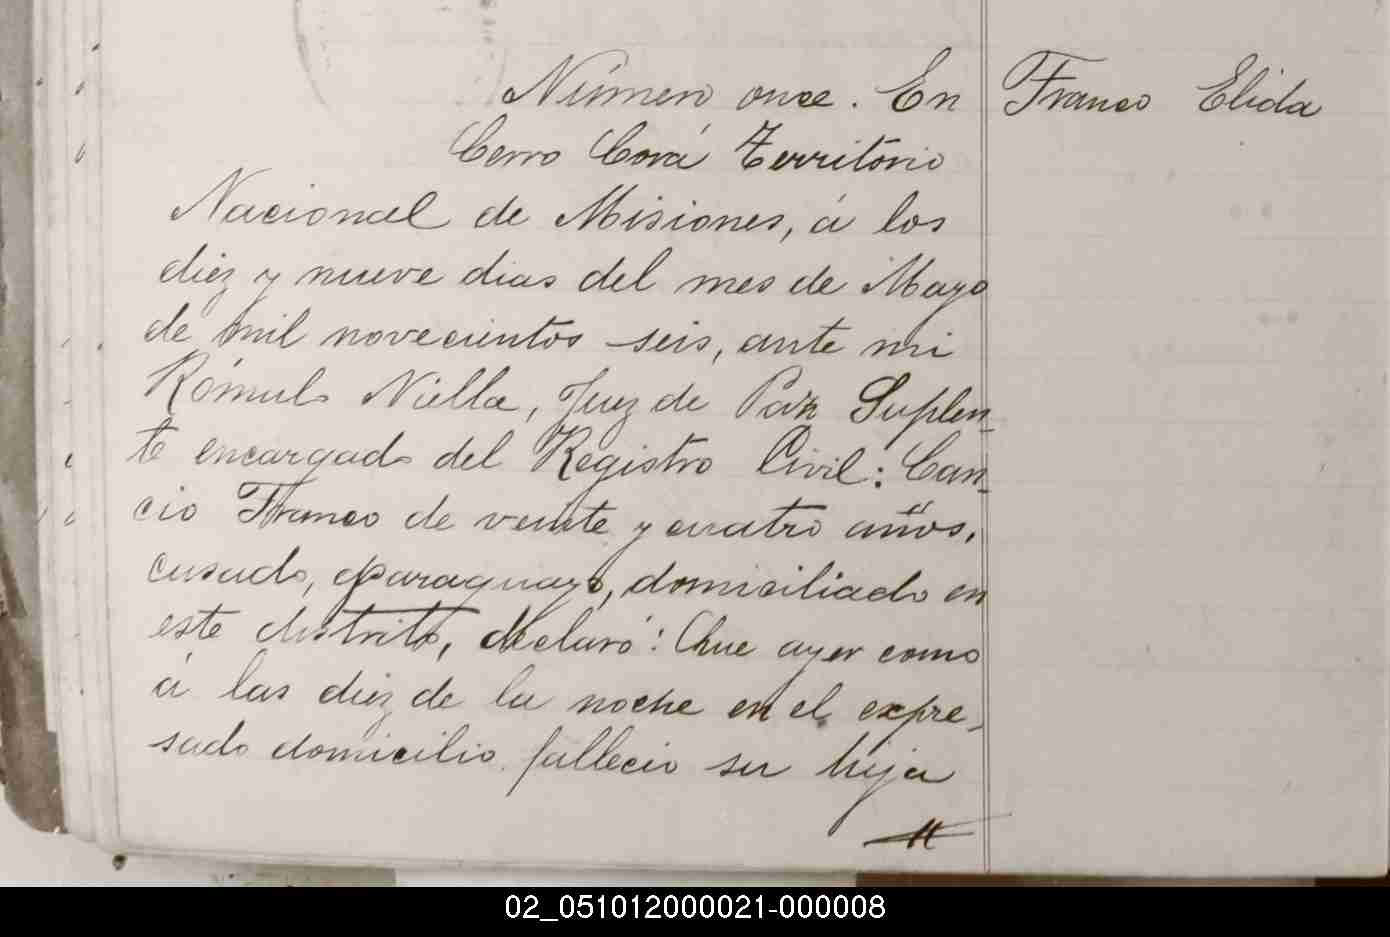 Número once. En
Franco Elida
Cerro Corá Territorio
Nacional de Misiones, á los
diez y nueve dias del mes de Mayo
de mil novecientos seis, ante mi
Rómulo Niella, Juez de Paz Suplen-
te encargado del Registro Civil: Can-
cio Franco de veinte y cuatro años,
casado, paraguayo, domiciliado en
este distrito, declaró: Que ayer como
á las diez de la noche en el expre-
sado domicilio fallecio su hija
02_051012000021-000008